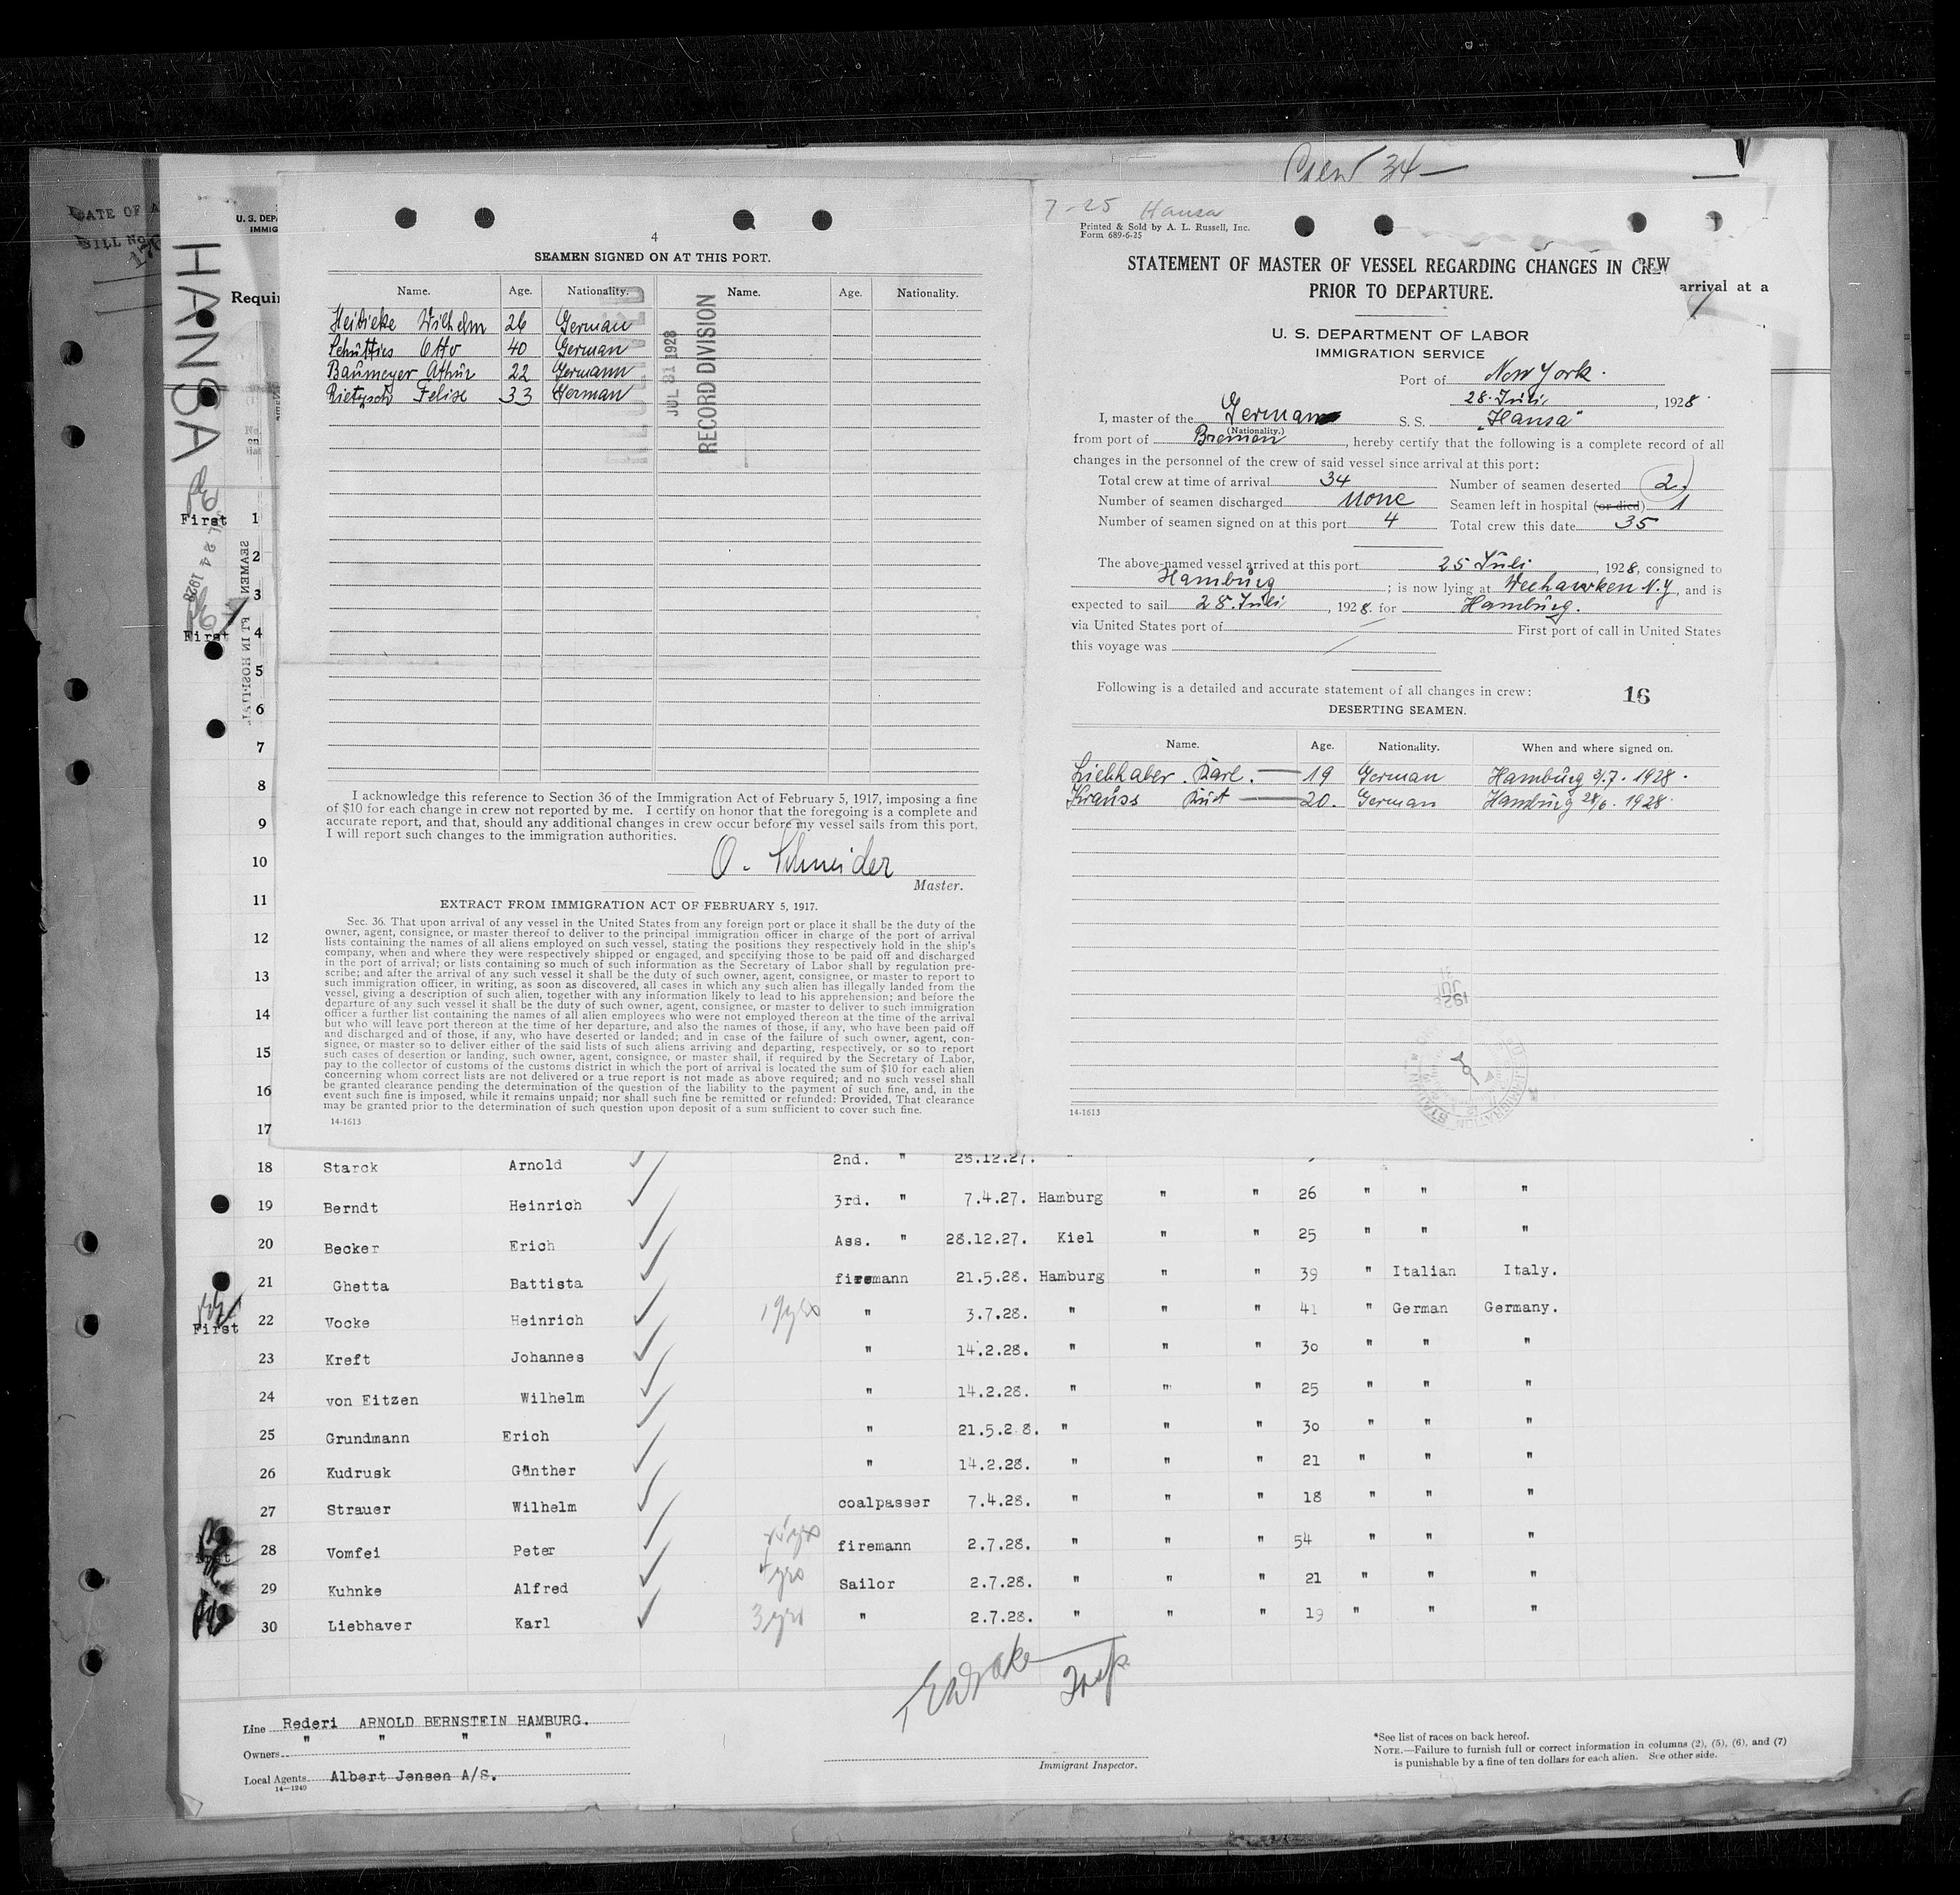 Crew 34 —
HANSA
DATE OF A
BILL No.
U. S. DEP
IMMIG
Requir
arrival at a
4
SEAMEN SIGNED ON AT THIS PORT.
Name. Age. Nationality. Name. Age. Nationality.
Wilhelm 26 German
Otto 40 German
Baumeyer Athur 22 Germann
Rietzsch Felixe 33 German
JUL 31 1928
RECORD DIVISION
I acknowledge this reference to Section 36 of the Immigration Act of February 5, 1917, imposing a fine
of $10 for each change in crew not reported by me. I certify on honor that the foregoing is a complete and
accurate report, and that, should any additional changes in crew occur before my vessel sails from this port,
I will report such changes to the immigration authorities.
O. Schneider
Master.
EXTRACT FROM IMMIGRATION ACT OF FEBRUARY 5, 1917.
Sec. 36. That upon arrival of any vessel in the United States from any foreign port or place it shall be the duty of the
owner, agent, consignee, or master thereof to deliver to the principal immigration officer in charge of the port of arrival
lists containing the names of all aliens employed on such vessel, stating the positions they respectively hold in the ship's
company, when and where they were respectively shipped or engaged, and specifying those to be paid off and discharged
in the port of arrival; or lists containing so much of such information as the Secretary of Labor shall by regulation pre-
scribe; and after the arrival of any such vessel it shall be the duty of such owner, agent, consignee, or master to report to
such immigration officer, in writing, as soon as discovered, all cases in which any such alien has illegally landed from the
vessel, giving a description of such alien, together with any information likely to lead to his apprehension; and before the
departure of any such vessel it shall be the duty of such owner, agent, consignee, or master to deliver to such immigration
officer a further list containing the names of all alien employees who were not employed thereon at the time of the arrival
but who will leave port thereon at the time of her departure, and also the names of those, if any, who have been paid off
and discharged and of those, if any, who have deserted or landed; and in case of the failure of such owner, agent, con-
signee, or master so to deliver either of the said lists of such aliens arriving and departing, respectively, or so to report
such cases of desertion or landing, such owner, agent, consignee, or master shall, if required by the Secretary of Labor,
pay to the collector of customs of the customs district in which the port of arrival is located the sum of $10 for each alien
concerning whom correct lists are not delivered or a true report is not made as above required; and no such vessel shall
be granted clearance pending the determination of the question of the liability to the payment of such fine, and, in the
event such fine is imposed, while it remains unpaid; nor shall such fine be remitted or refunded: Provided, That clearance
may be granted prior to the determination of such question upon deposit of a sum sufficient to cover such fine.
14-1613
7-25 Hansa
Printed & Sold by A. L. Russell, Inc.
Form 689-6-25
STATEMENT OF MASTER OF VESSEL REGARDING CHANGES IN CREW
PRIOR TO DEPARTURE.
U. S. DEPARTMENT OF LABOR
IMMIGRATION SERVICE
Port of New York.
28. Juli, 1928.
I, master of the German S. S. "Hansa"
(Nationality.)
from port of Bremen, hereby certify that the following is a complete record of all
changes in the personnel of the crew of said vessel since arrival at this port:
Total crew at time of arrival 34 Number of seamen deserted 2.
Number of seamen discharged none Seamen left in hospital (or died) 1
Number of seamen signed on at this port 4 Total crew this date 35
The above-named vessel arrived at this port 25 Juli, 1928, consigned to
Hamburg; is now lying at Weehawken N.Y., and is
expected to sail 28. Juli, 1928. for Hamburg.
via United States port of First port of call in United States
this voyage was
Following is a detailed and accurate statement of all changes in crew:
16
DESERTING SEAMEN.
Name. Age. Nationality. When and where signed on.
Liebhaber Karl. — 19 German Hamburg 3/.7. 1928.
Krauss Kurt — 20. German Hamburg 28/6. 1928.
14-1613
First 1
2
3
First 4
5
6
7
8
9
10
11
12
13
14
15
16
17
18 Starck Arnold 2nd. " 28.12.27. "
19 Berndt Heinrich 3rd. " 7.4.27. Hamburg " " 26 " " "
20 Becker Erich Ass. " 28.12.27. Kiel " " 25 " " "
21 Ghetta Battista firemann 21.5.28. Hamburg " " 39 " Italian Italy.
First 22 Vocke Heinrich " 3.7.28. " " " 41 " German Germany.
23 Kreft Johannes " 14.2.28. " " " 30 " " "
24 von Eitzen Wilhelm " 14.2.28. " " " 25 " " "
25 Grundmann Erich " 21.5.28. " " " 30 " " "
26 Kudrusk Günther " 14.2.28. " " " 21 " " "
27 Strauer Wilhelm coalpasser 7.4.28. " " " 18 " " "
First 28 Vomfei Peter firemann 2.7.28. " " " 54 " " "
29 Kuhnke Alfred Sailor 2.7.28. " " " 21 " " "
30 Liebhaver Karl 3 yrs " 2.7.28. " " " 19 " " "
Line Rederi ARNOLD BERNSTEIN HAMBURG.
Owners " " " "
Local Agents Albert Jensen A/S.
14—1240
Immigrant Inspector.
*See list of races on back hereof.
NOTE.—Failure to furnish full or correct information in columns (2), (5), (6), and (7)
is punishable by a fine of ten dollars for each alien. See other side.